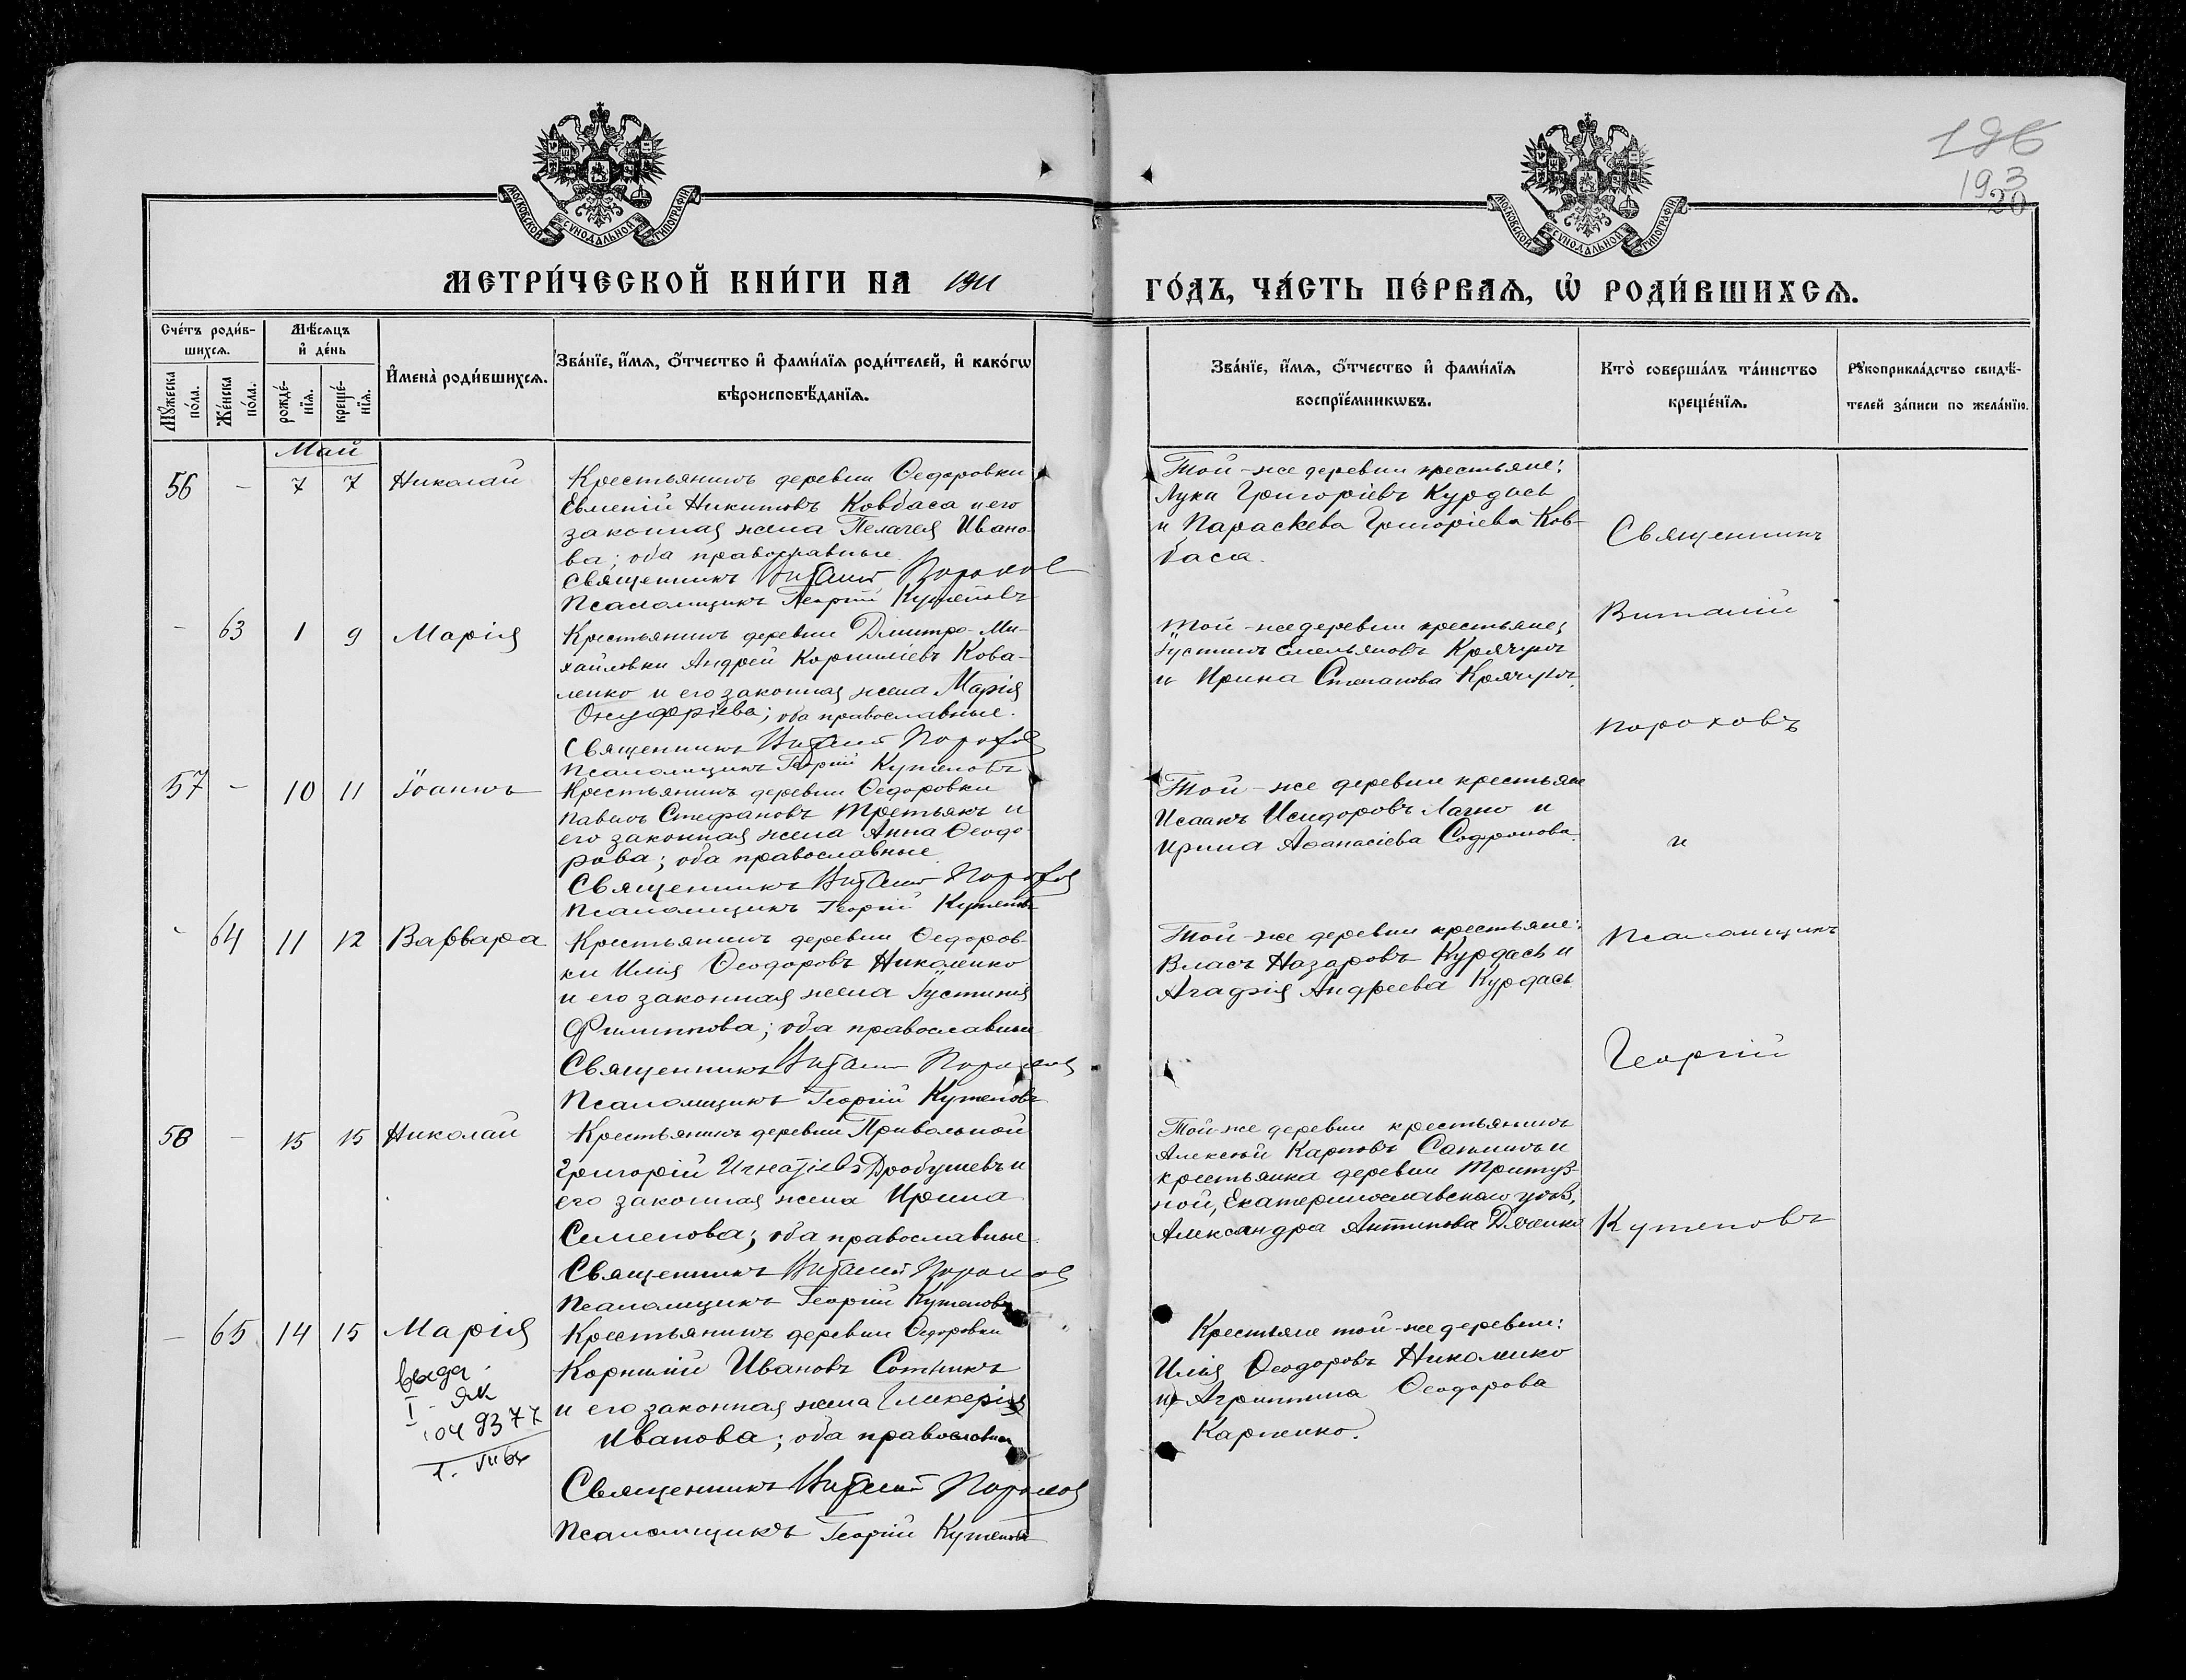 126
193
20
МОСКОВСКОЙ СѴНОДАЛЬНОЙ ТИПОГРАФІИ
МОСКОВСКОЙ СѴНОДАЛЬНОЙ ТИПОГРАФІИ
МЕТРИ́ЧЕСКОЙ КНИ́ГИ НА 1911
ГО́ДЪ, ЧА́СТЬ ПЕ́РВАѦ, Ѡ҆ РОДИ́ВШИХСѦ.
Сче́тъ роди́в-
шихсѧ.
Мꙋ́жеска по́ла.
Же́нска по́ла.
Мѣ́сѧцъ
и҆ де́нь
рожде́-
нїѧ.
креще́-
нїѧ.
И҆мена̀ роди́вшихсѧ.
Зва́нїе, и҆́мѧ, ѻ҆́тчество и҆ фами́лїѧ роди́телей, и҆ како́гѡ
вѣроисповѣ́данїѧ.
Зва́нїе, и҆́мѧ, ѻ҆́тчество и҆ фами́лїѧ
воспрїе́мникѡвъ.
Кто̀ соверша́лъ та́инство
креще́нїѧ.
Рꙋкоприкла́дство свидѣ́-
телей за́писи по жела́нїю.
Май
56 - 7 7 Николай
Крестьянинъ деревни Ѳедоровки
Евменій Никитовъ Ковбаса и его
законная жена Пелагея Ивано-
ва; оба православные.
Священникъ Виталій Порохов
Псаломщикъ Георгій Кутеповъ
Той-же деревни крестьяне:
Лука Григоріевъ Курдась
и Параскева Григоріева Ков-
баса.
- 63 1 9 Марія
Крестьянинъ деревни Дмитро-Ми-
хайловки Андрей Корниліевъ Кова-
ленко и его законная жена Марія
Онуфріева; оба православные.
Священникъ Виталій Порохов
Псаломщикъ Георгій Кутеповъ
Той-же деревни крестьяне;
Іустинъ Емельяновъ Крячунъ
и Ирина Степанова Крячунъ.
57 - 10 11 Іоаннъ
Крестьянинъ деревни Ѳедоровки
Павелъ Стефановъ Третьякъ и
его законная жена Анна Ѳеодо-
рова; оба православные
Священникъ Виталій Порохов
Псаломщикъ Георгій Кутеповъ
Той-же деревни крестьяне
Исаакъ Исидоровъ Лагно и
Ирина Аѳанасіева Софронова.
- 64 11 12 Варвара
Крестьянинъ деревни Ѳедоров-
ки Илія Ѳеодоровъ Николенко
и его законная жена Іустинія
Филиппова; оба православные
Священникъ Виталій Порохов
Псаломщикъ Георгій Кутеповъ
Той-же деревни крестьяне:
Власъ Назаровъ Курдась и
Агафія Андреева Курдась.
58 - 15 15 Николай
Крестьянинъ деревни Привольной
Григорій Игнатіевъ Дробушевъ и
его законная жена Ирина
Семенова; оба православные.
Священникъ Виталій Порохов
Псаломщикъ Георгій Кутеповъ
Той-же деревни крестьянинъ
Алексѣй Карповъ и
крестьянка деревни Тритуз-
ной, Екатеринославскаго уѣз.,
Александра Антипова Дяченко
- 65 14 15 Марія
Крестьянинъ деревни Ѳедоровки
Корнилій Ивановъ Сотникъ
и его законная жена Гликерія
Иванова; оба православные
Священникъ Виталій Порохов
Псаломщикъ Георгій Кутеповъ
Крестьяне той-же деревни:
Илія Ѳеодоровъ Николенко
и Агриппина Ѳеодорова
Карпенко.
Священникъ
Виталій
Пороховъ
и
Псаломщикъ
Георгій
Кутеповъ